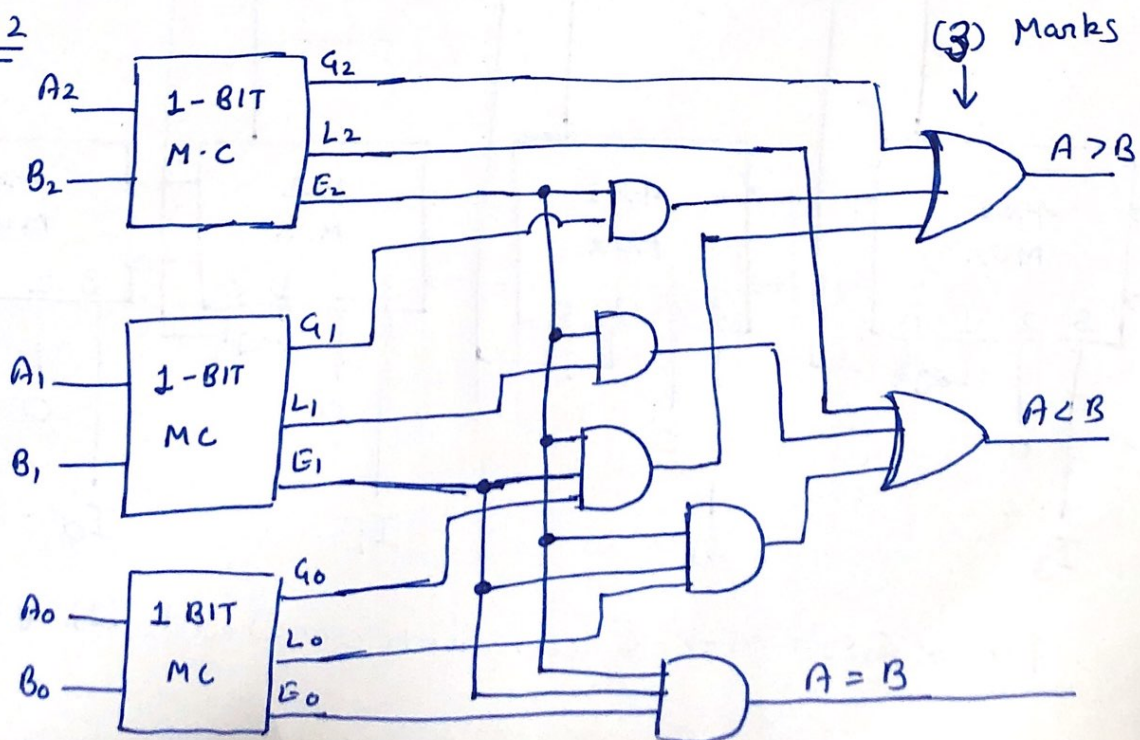 2
(3) Marks
A2
1-BIT
M.C
B2
G2
L2
E2
A > B
A1
1-BIT
MC
B1
G1
L1
E1
A < B
A0
1 BIT
MC
B0
G0
L0
E0
A = B